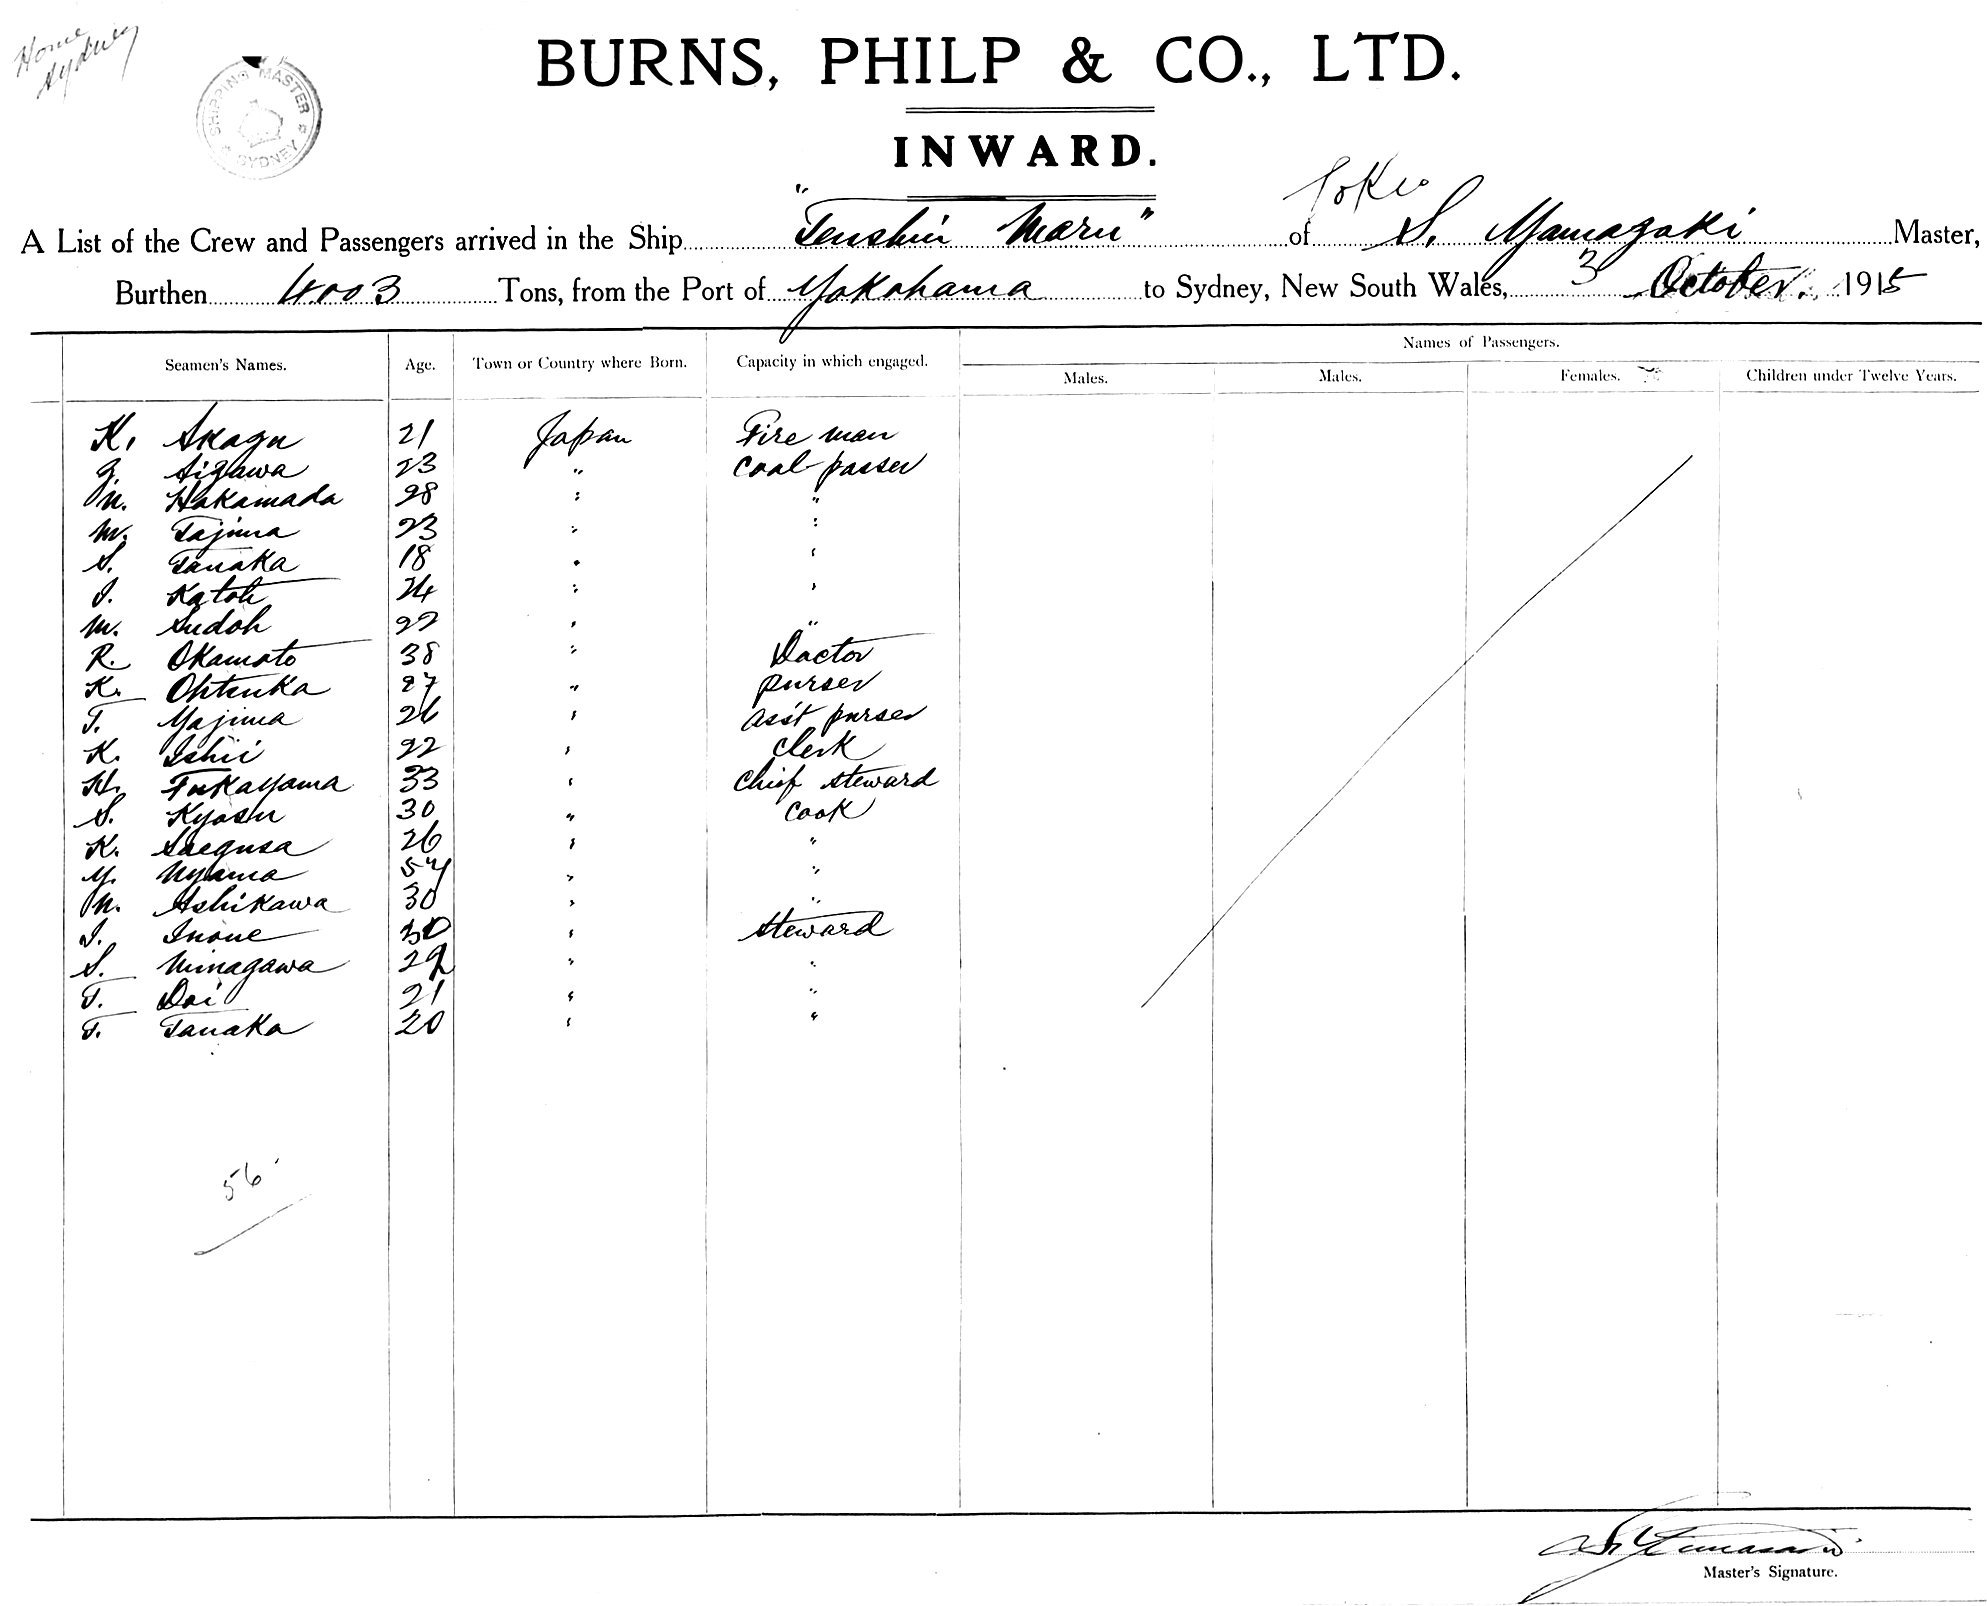 Home
Sydney
SHIPPING MASTER
SYDNEY
BURNS, PHILP & CO., LTD.
INWARD.
Tokio
A List of the Crew and Passengers arrived in the Ship "Tenshin Maru" of S. Yamazaki Master,
Burthen 4003 Tons, from the Port of Yokohama to Sydney, New South Wales, 3 October. 1915
Names of Passengers.
Seamen's Names. Age. Town or Country where Born. Capacity in which engaged. Males. Males. Females. Children under Twelve Years.
K. Akagu 21 Japan Fire man
G. Aizawa 23 " Coal passer
N. Hakamada 28 " "
M. Tajima 23 " "
S. Tanaka 18 " "
I. Katoh 24 " "
M. Sudoh 22 " "
R. Okamoto 38 " Doctor
K. Ohtsuka 27 " purser
T. Yajima 26 " ass't purser
K. Ishii 22 " Clerk
H. Fukayama 33 " Chief steward
S. Kyosu 30 " Cook
K. Saegusa 26 " "
Y. " "
N. Ashikawa 30 " "
I. Inoue 30 " Steward
S. Minagawa " "
T. Doi 21 " "
T. Tanaka 20 " "
56
Master's Signature.